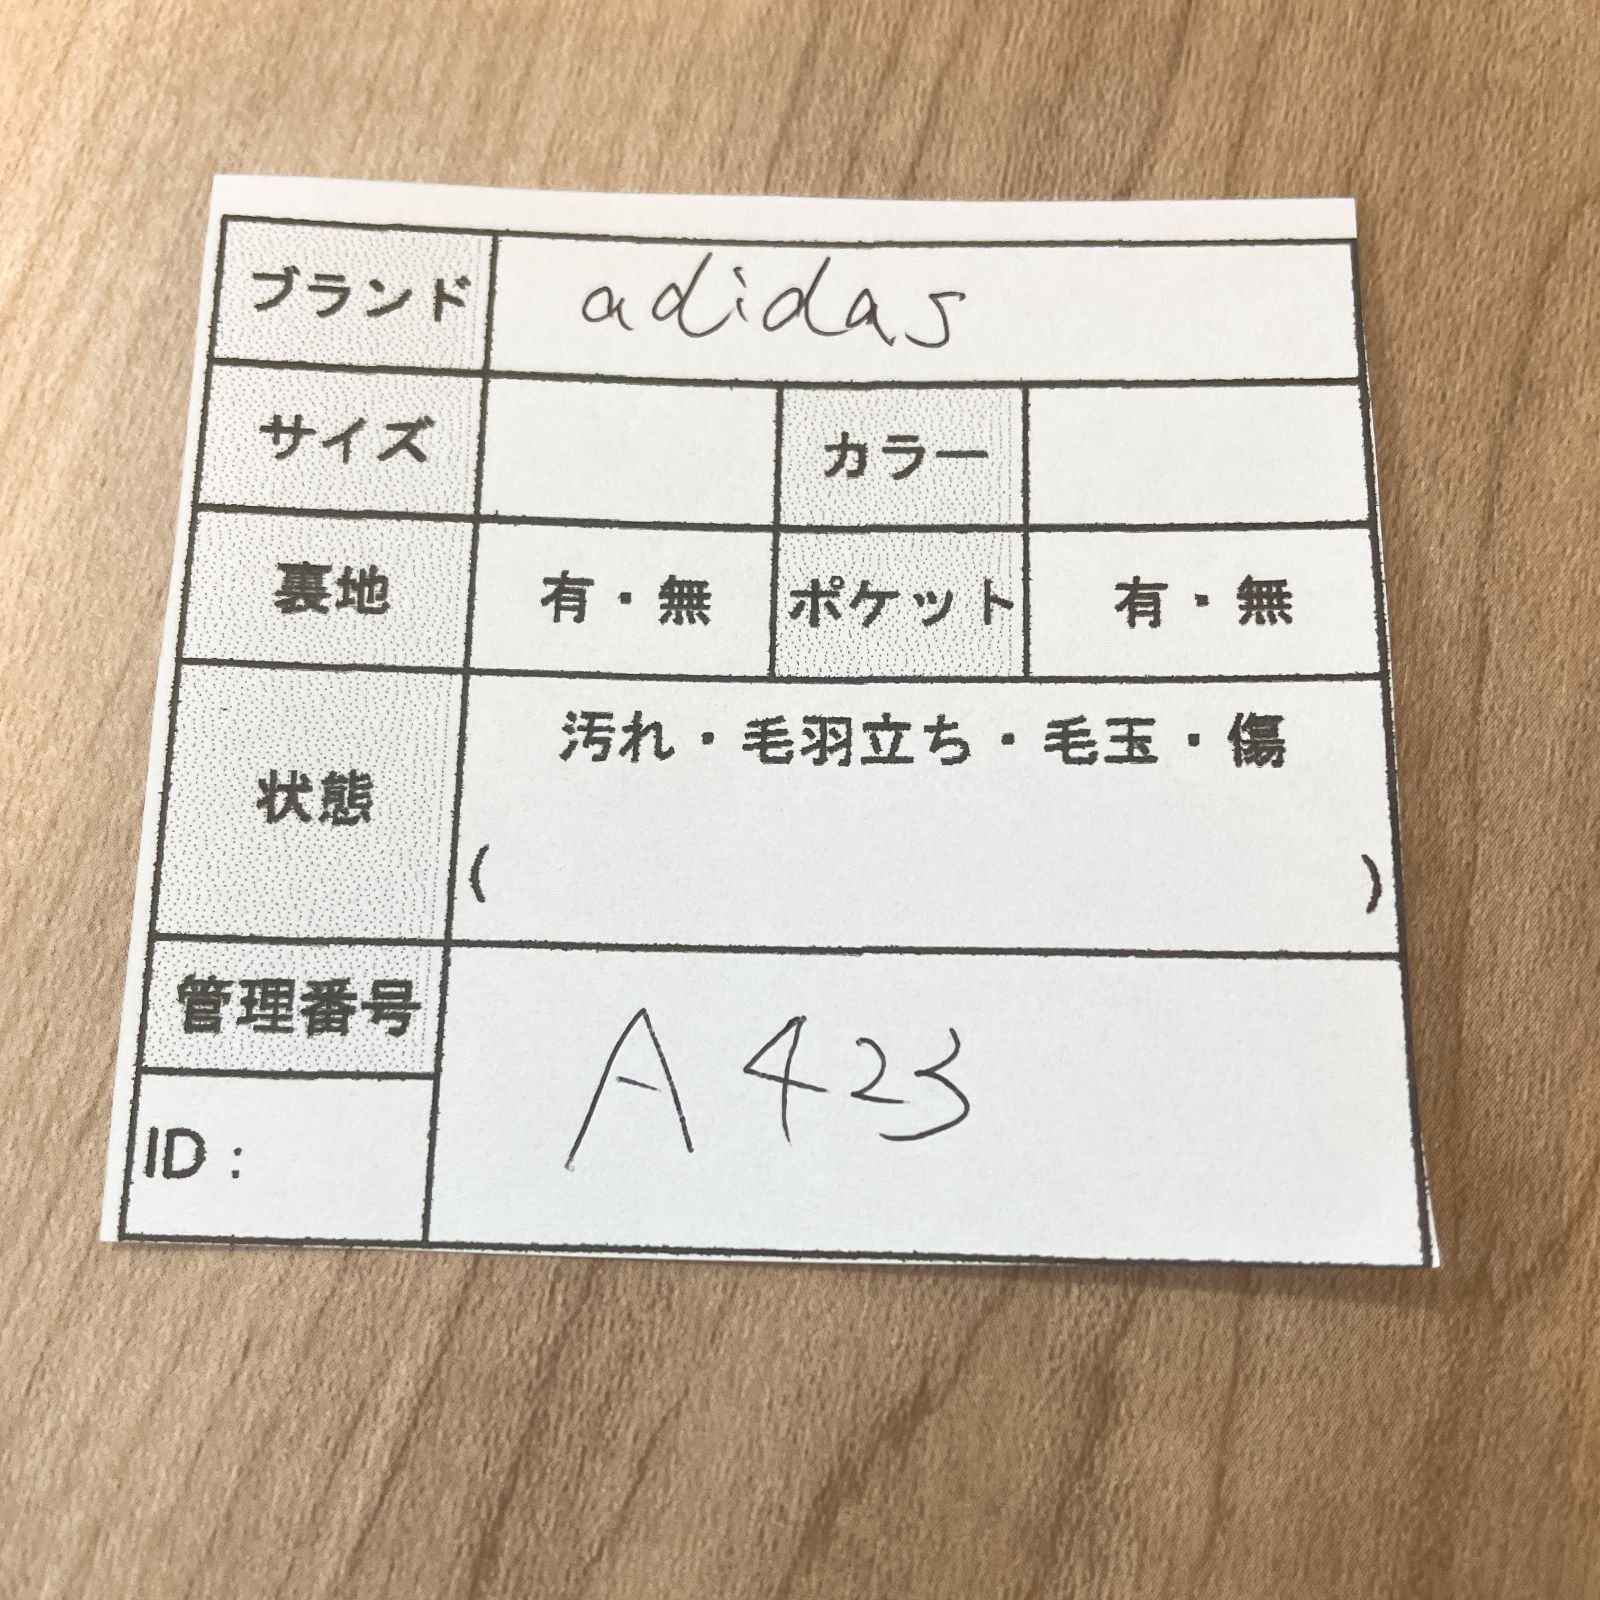 ブランド adidas
サイズ カラー
裏地 有・無 ポケット 有・無
状態 汚れ・毛羽立ち・毛玉・傷
( )
管理番号 A423
ID：